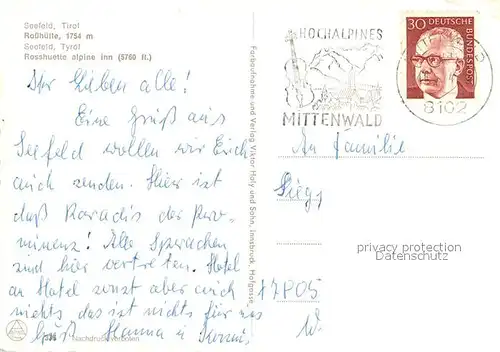 Seefeld, Tirol
Roßhütte, 1754 m
Seefeld, Tyrol
Rosshuette alpine inn (5760 ft.)
Ihr Lieben alle!
Eine Gruß aus
Seefeld wollen wir Euch
auch senden. Hier ist
daß Paradis der Pro-
minenz! Alle Sprachen
sind hier vertreten. Hotel
an Hotel sonst aber auch
nichts das ist nichts für uns
Gruß Hanna u.
Nachdruck verboten
Farbaufnahme und Verlag Viktor Holy und Sohn, Innsbruck, Hofgasse
HOCHALPINES
MITTENWALD
30
DEUTSCHE
BUNDESPOST
8102
An Familie
privacy protection
Datenschutz